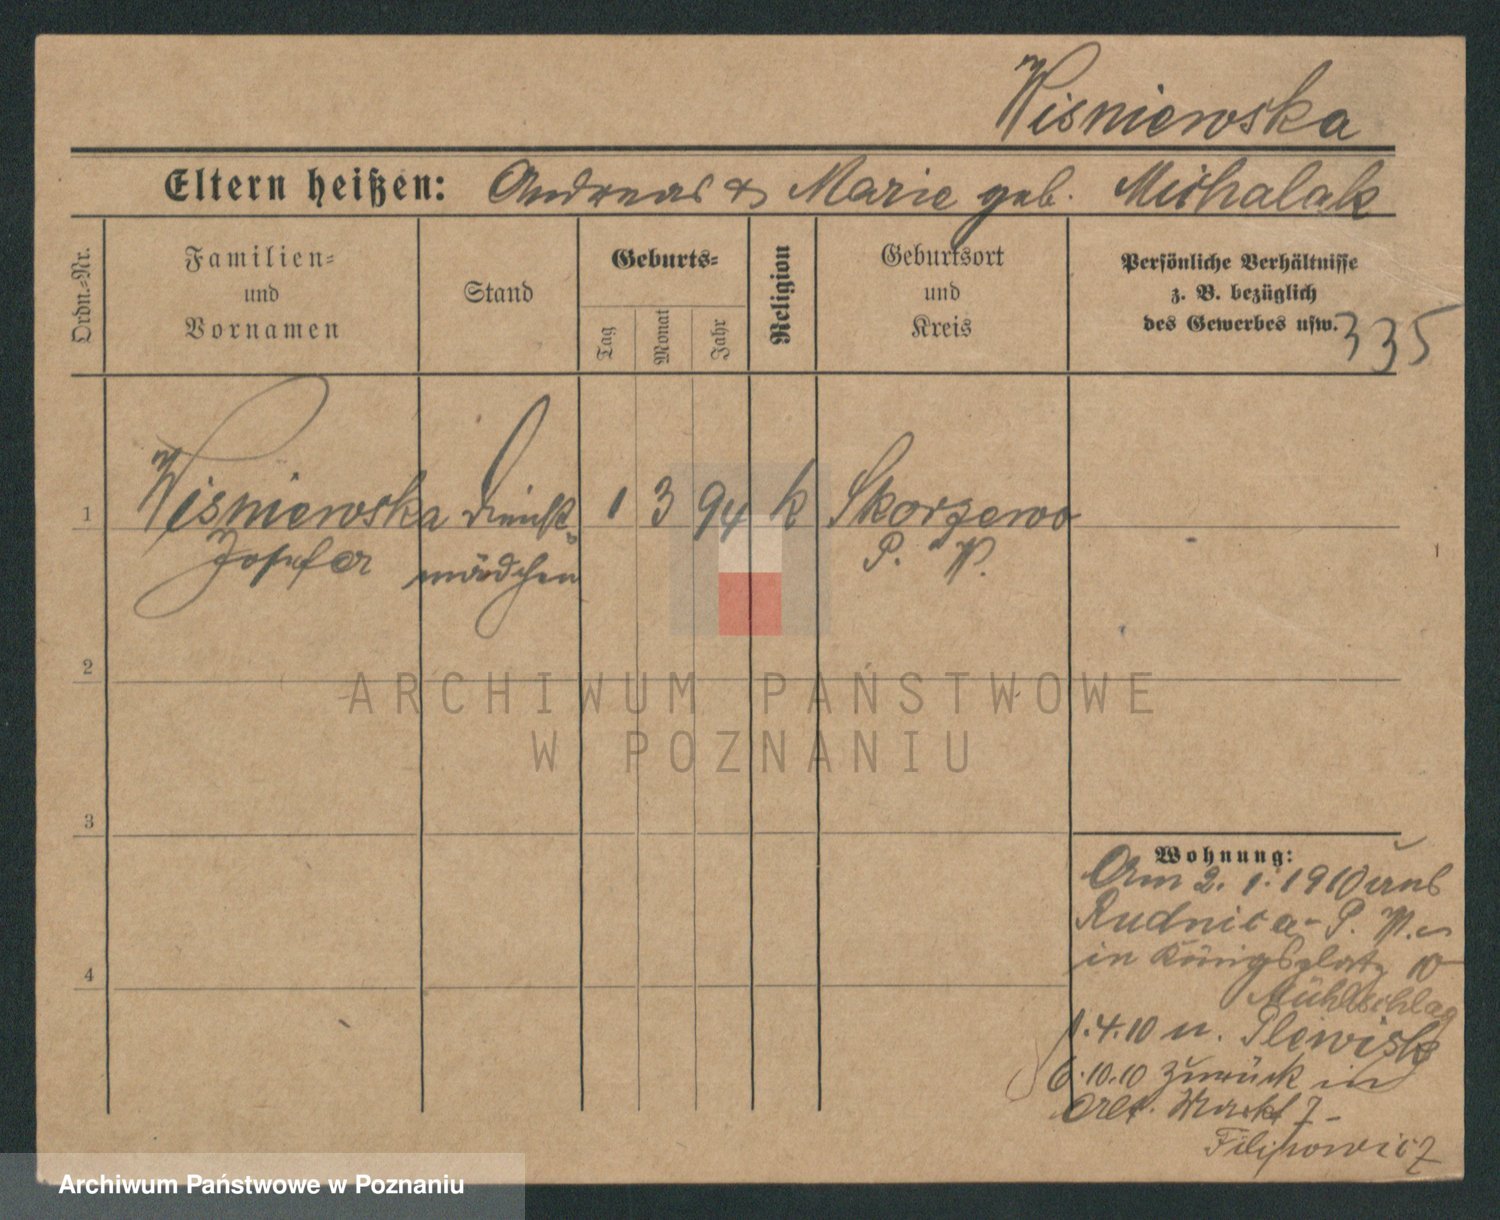 Wisniewska
Eltern heißen: Andreas & Marie geb. Michalak
Ordn.=Nr.
Familien=
und
Vornamen
Stand
Geburts=
Tag
Monat
Jahr
Religion
Geburtsort
und
Kreis
Persönliche Verhältnisse
z. B. bezüglich
des Gewerbes usw.
335
1 Wisniewska Dienst= 1 3 94 k Skorzewo
Josefa mädchen P. W.
2
ARCHIWUM PAŃSTWOWE
W POZNANIU
3
Wohnung:
Am 2. 1. 1910 aus
Rudnica - P. W.
in Königsplatz 10
4
1.4.10 n. Plewisk
6.10.10 zurück in
Alt. Markt 7-
Filipowicz
Archiwum Państwowe w Poznaniu